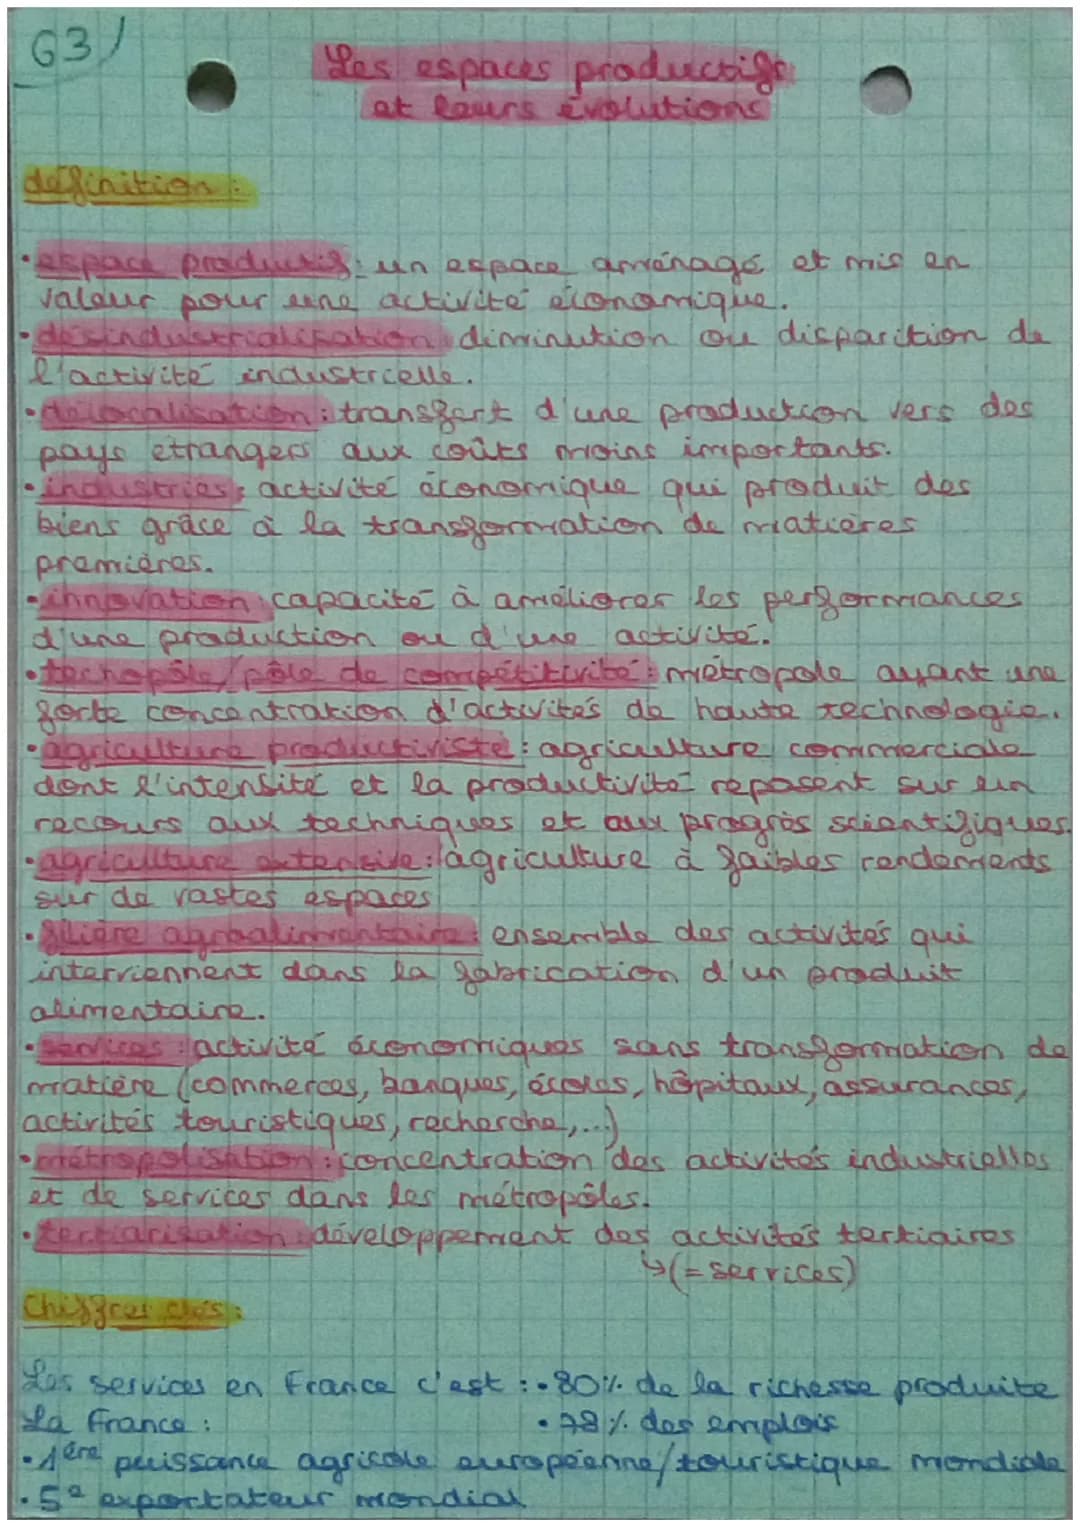 G3)
Les espaces productifs
et leurs évolutions
définition :
• espace productif : un espace aménagé et mis en
valeur pour une activité économique.
• désindustrialisation : diminution ou disparition de
l'activité industrielle.
• délocalisation : transfert d'une production vers des
pays étrangers aux coûts moins importants.
• industries : activité économique qui produit des
biens grâce à la transformation de matières
premières.
• innovation : capacité à améliorer les performances
d'une production ou d'une activité.
• techopôle/pôle de compétitivité : métropole ayant une
forte concentration d'activités de haute technologie.
• agriculture productiviste : agriculture commerciale
dont l'intensité et la productivité reposent sur un
recours aux techniques et aux progrès scientifiques.
• agriculture extensive : agriculture à faibles rendements
sur de vastes espaces
• filière agroalimentaire : ensemble des activités qui
interviennent dans la fabrication d'un produit
alimentaire.
• services : activité économiques sans transformation de
matière (commerces, banques, écoles, hôpitaux, assurances,
activités touristiques, recherche,...)
• métropolisation : concentration des activités industrielles
et de services dans les métropôles.
• tertiarisation : développement des activités tertiaires
↳ (= services)
Chiffres clés :
Les services en France c'est : • 80% de la richesse produite
La France : • 78% des emplois
• 1ère puissance agricole européenne/touristique mondiale
• 5e exportateur mondial